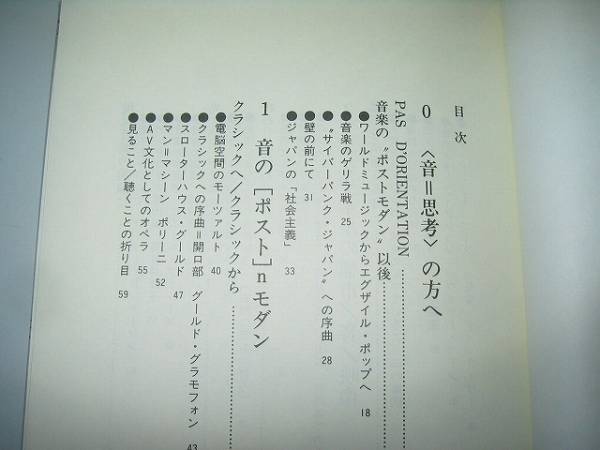 目次
0 〈音＝思考〉の方へ
PAS D'ORIENTATION…………
音楽の〝ポストモダン〟以後…………
●ワールドミュージックからエグザイル・ポップへ 18
●音楽のゲリラ戦 25
●〝サイバーパンク・ジャパン〟への序曲 28
●壁の前にて 31
●ジャパンの「社会主義」 33
1 音の［ポスト］nモダン
クラシックへ／クラシックから…………
●電脳空間のモーツァルト 40
●クラシックへの序曲＝開口部 グールド・グラモフォン 43
●スローターハウス・グールド 47
●マン＝マシーン ポリーニ 52
●AV文化としてのオペラ 55
●見ること／聴くことの折り目 59